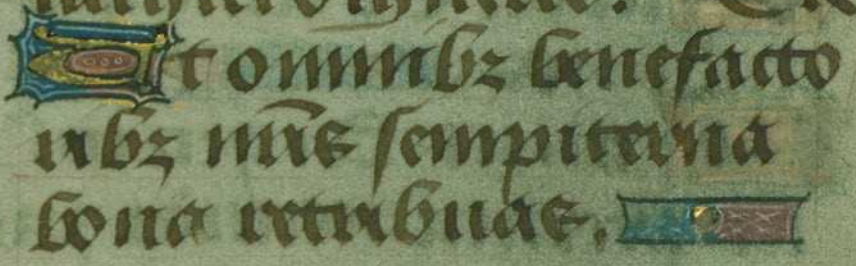 Ut omnibꝫ benefacto
ribꝫ nr̄is sempiterna
bona retribuas.